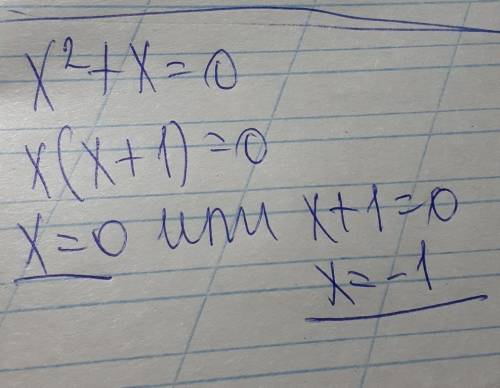 x²+x=0
x(x+1)=0
x=0 или x+1=0
x=-1